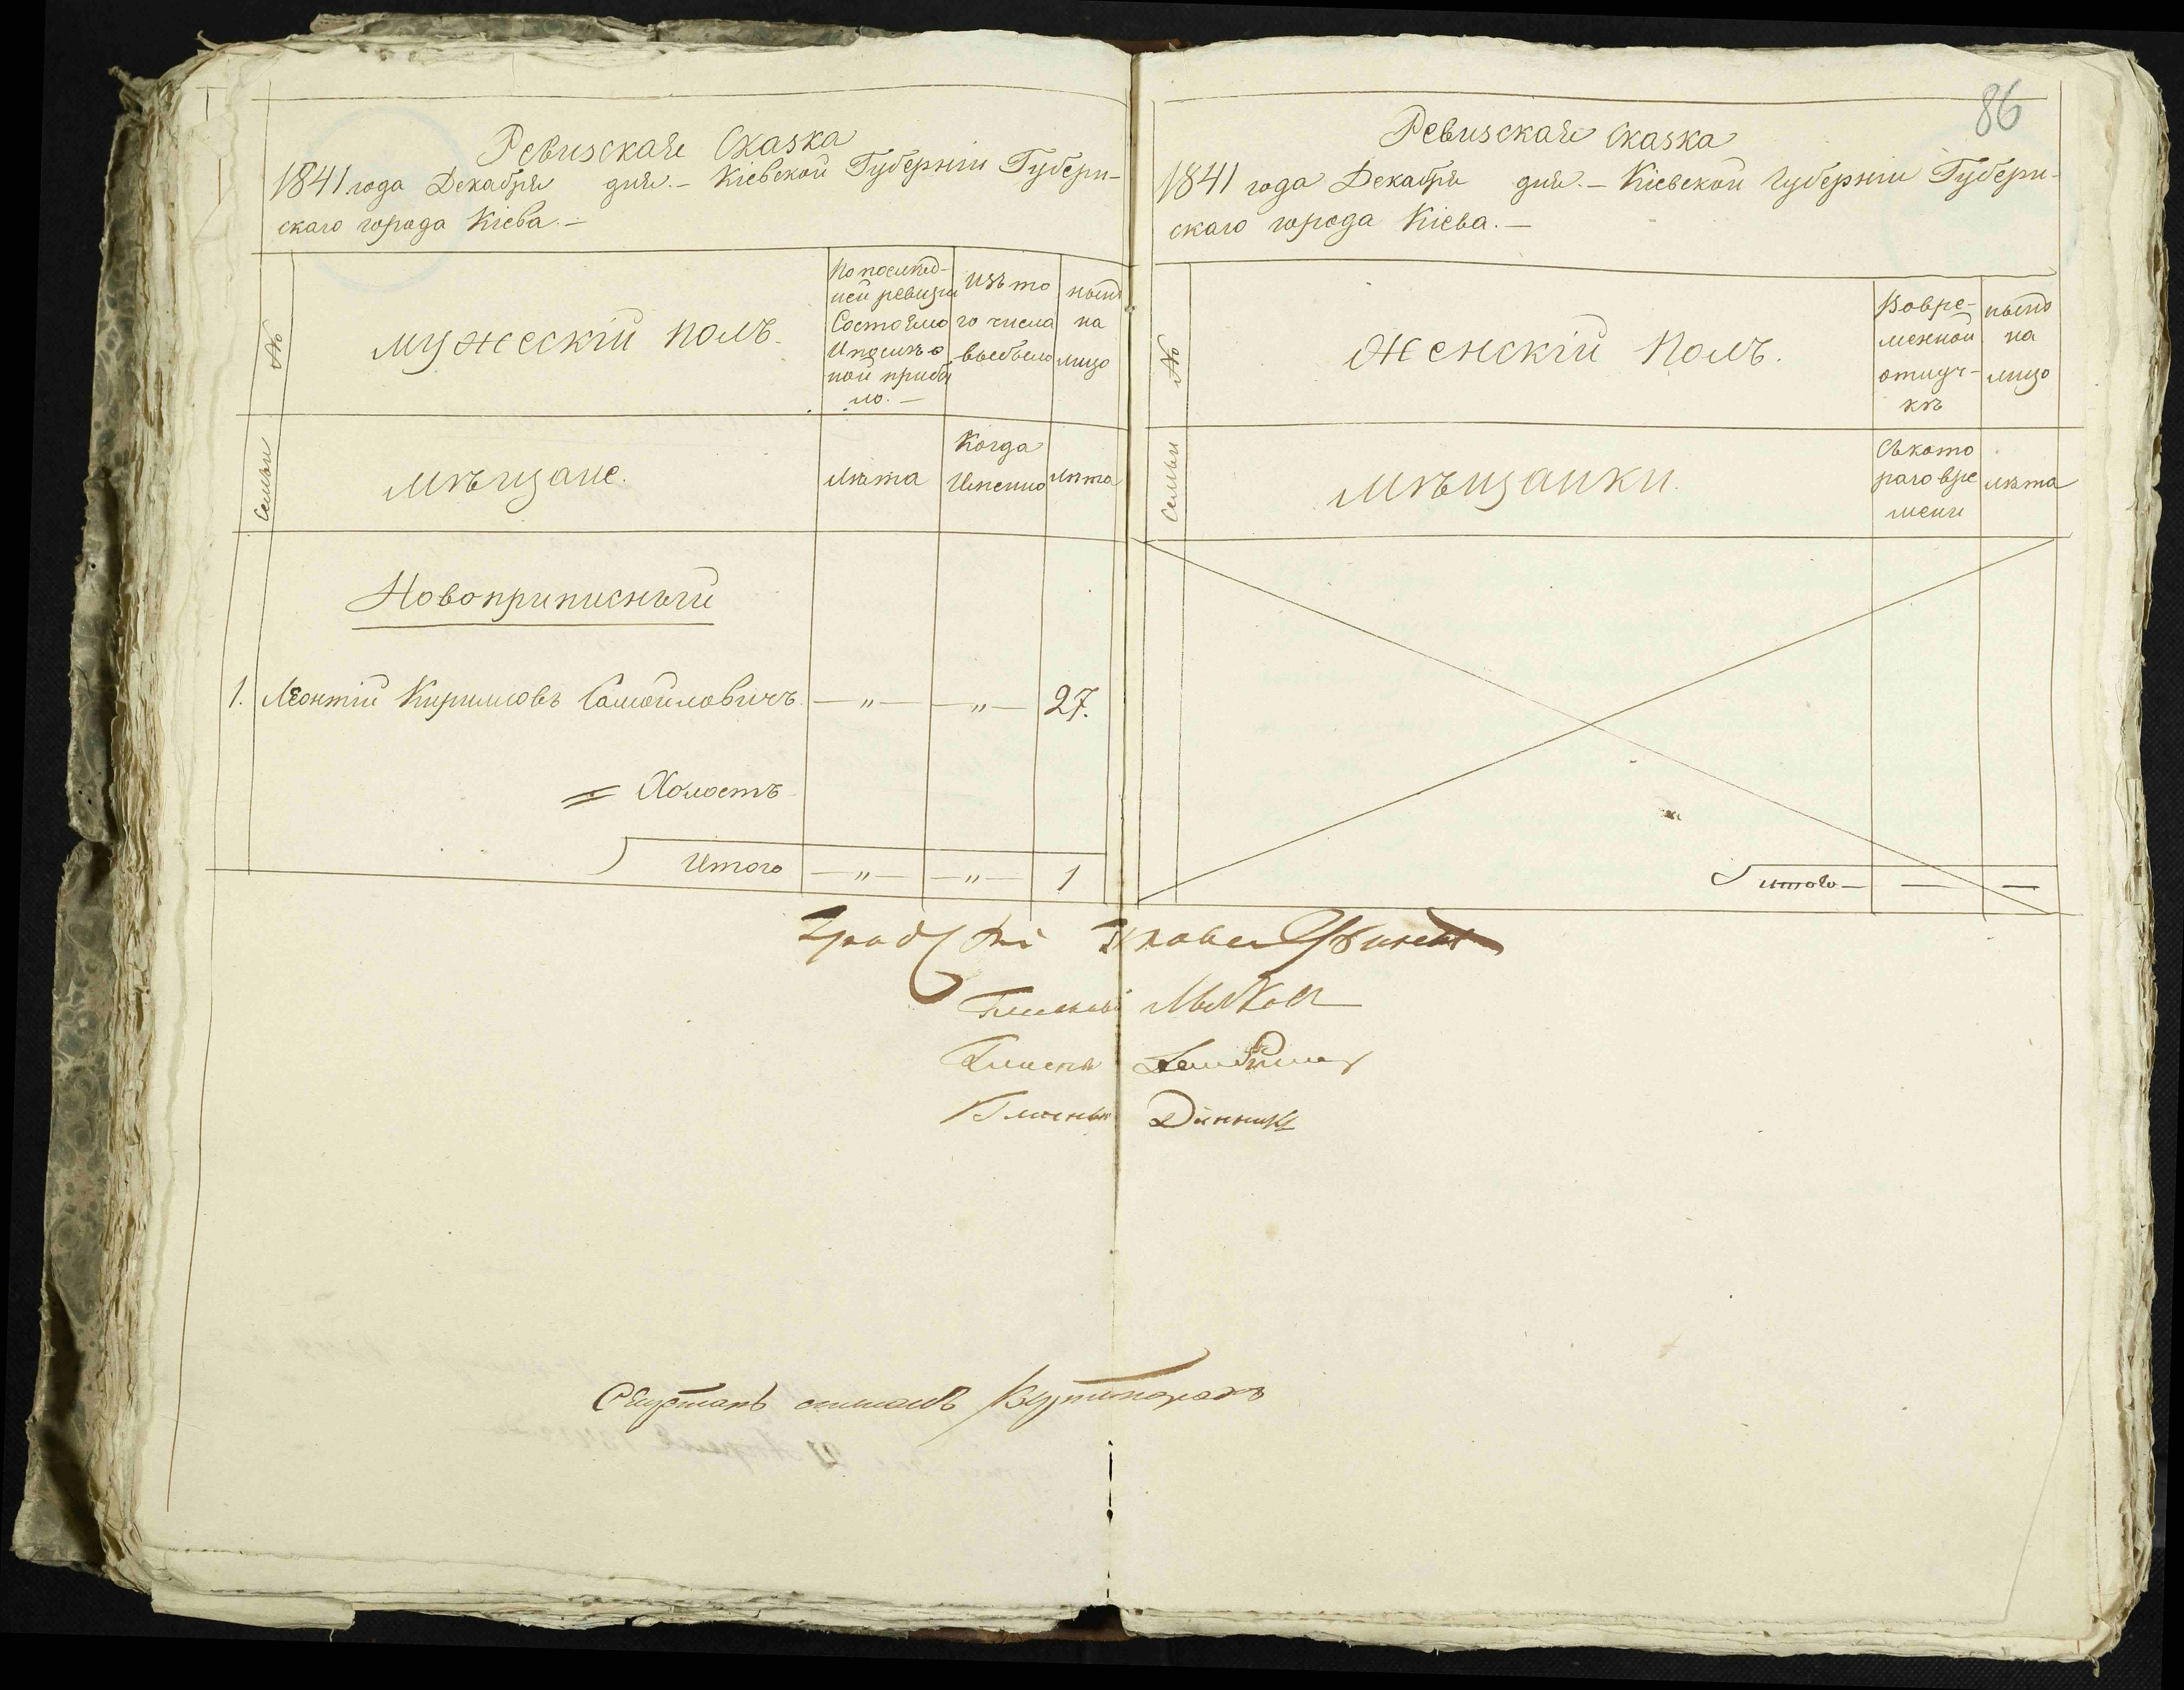 Ревизская Сказка
1841 года Декабря дня. – Кіевской Губерніи Губерн-
скаго города Кіева. –
№
Мужескій Полъ.
По послѣд-
ней ревизіи
Состояло
И послѣ о
ной прибы
ло. –
Изъ то
го числа
выбыло
нынѣ
на
лицо
Семьи
Мѣщане.
Лѣта
Когда
Именно
Лѣта
Новоприписный
1. Леонтій Кириловъ Самойловичъ. — „ — — „ — 27.
= Холостъ
Итого — „ — — „ — 1
86
Ревизская Сказка
1841 года Декабря дня. – Кіевской Губерніи Губерн-
скаго города Кіева. –
№
Женскій Полъ.
Вовре-
менной
отлуч-
кѣ
нынѣ
на
лицо
Семьи
Мѣщанки.
Съ кото
раго вре
мени
лѣта
итого — — —
Градскій Глава
Гласный
Гласный
Гласный Динникъ